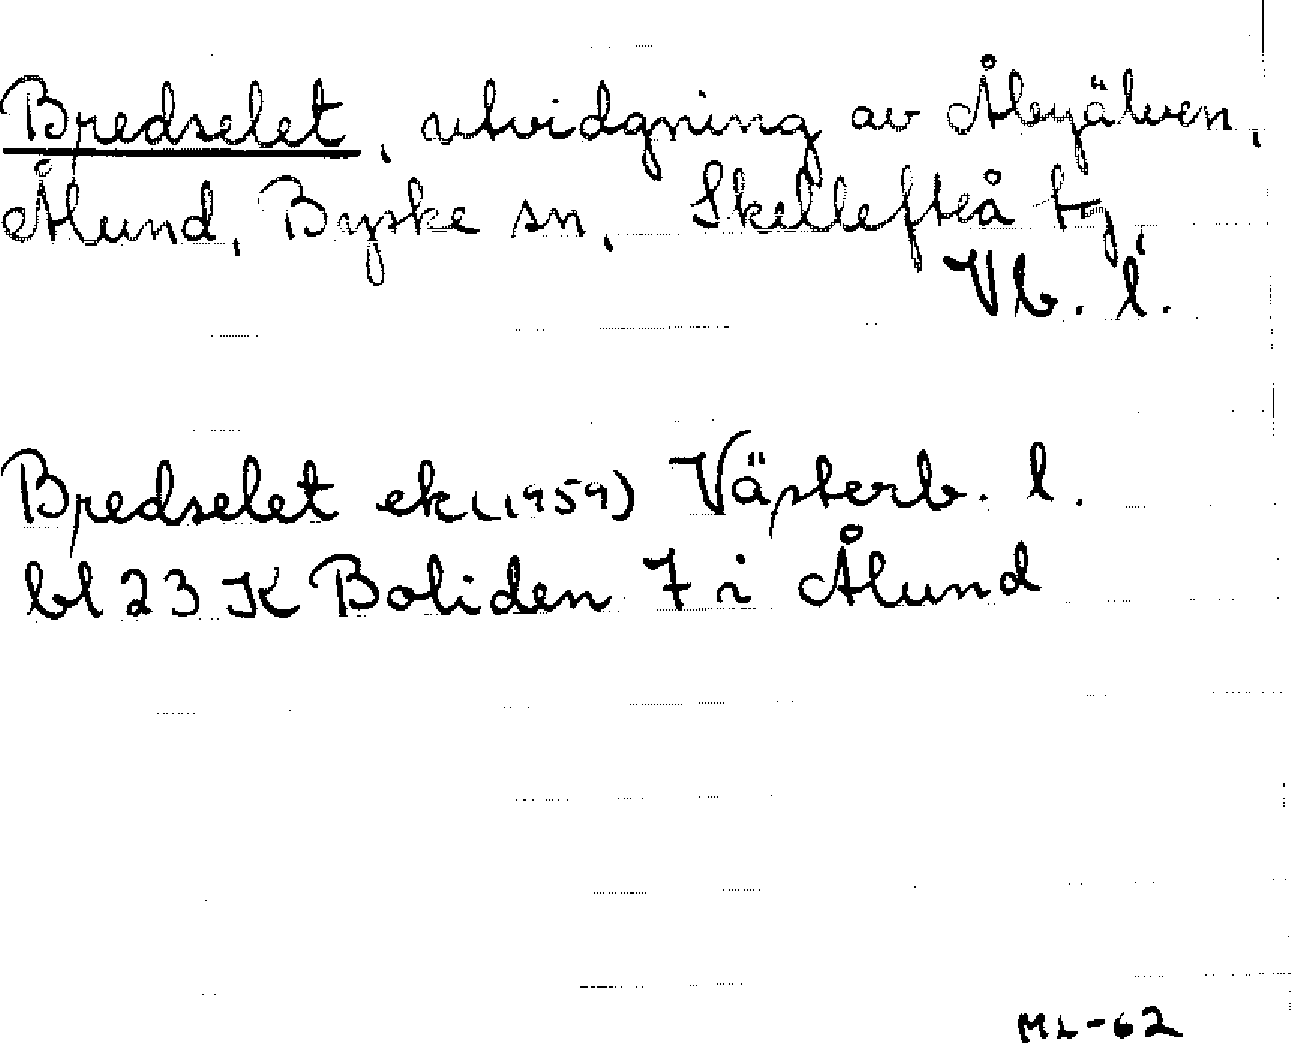 Bredselet, utvidgning av Åbyälven,
Ålund, Byske sn, Skellefteå tg,
Vb. l.
Bredselet ek (1959) Västerb. l.
bl 23 K Boliden 7 i Ålund
ML-62